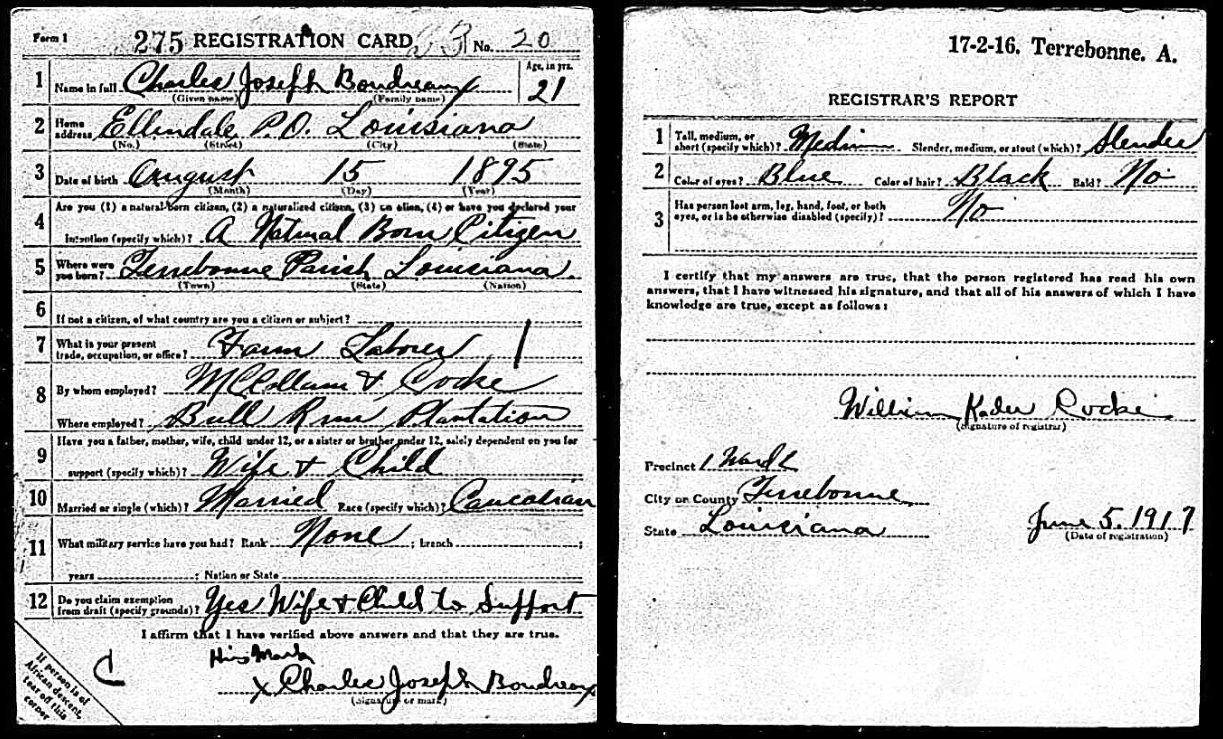 Form 1 275 REGISTRATION CARD No. 20
1 Name in full Charles Joseph Boudreaux Age, in yrs. 21
(Given name) (Family name)
2 Home address Ellindale P.O. Louisiana
(No.) (Street) (City) (State)
3 Date of birth August 15 1895
(Month) (Day) (Year)
4 Are you (1) a natural-born citizen, (2) a naturalized citizen, (3) an alien, (4) or have you declared your
intention (specify which)? A Natural Born Citizen
5 Where were you born? Terrebonne Parish Louisiana
(Town) (State) (Nation)
6 If not a citizen, of what country are you a citizen or subject?
7 What is your present trade, occupation, or office? Farm Laborer
8 By whom employed? McCollam & Cocke
Where employed? Bull Run Plantation
9 Have you a father, mother, wife, child under 12, or a sister or brother under 12, solely dependent on you for
support (specify which)? Wife & Child
10 Married or single (which)? Married Race (specify which)? Caucasian
11 What military service have you had? Rank None ; branch ;
years ; Nation or State
12 Do you claim exemption from draft (specify grounds)? Yes Wife & Child to Support
I affirm that I have verified above answers and that they are true.
His Mark
x Charles Joseph Boudreaux
(Signature or mark)
If person is of
African descent,
tear off this
corner
C
17-2-16. Terrebonne. A.
REGISTRAR'S REPORT
1 Tall, medium, or short (specify which)? Medium Slender, medium, or stout (which)? Slender
2 Color of eyes? Blue Color of hair? Black Bald? No
3 Has person lost arm, leg, hand, foot, or both
eyes, or is he otherwise disabled (specify)? No
I certify that my answers are true, that the person registered has read his own
answers, that I have witnessed his signature, and that all of his answers of which I have
knowledge are true, except as follows:
William Kader Cocke
(Signature of registrar)
Precinct 1 Ward
City or County Terrebonne
State Louisiana June 5, 1917
(Date of registration)